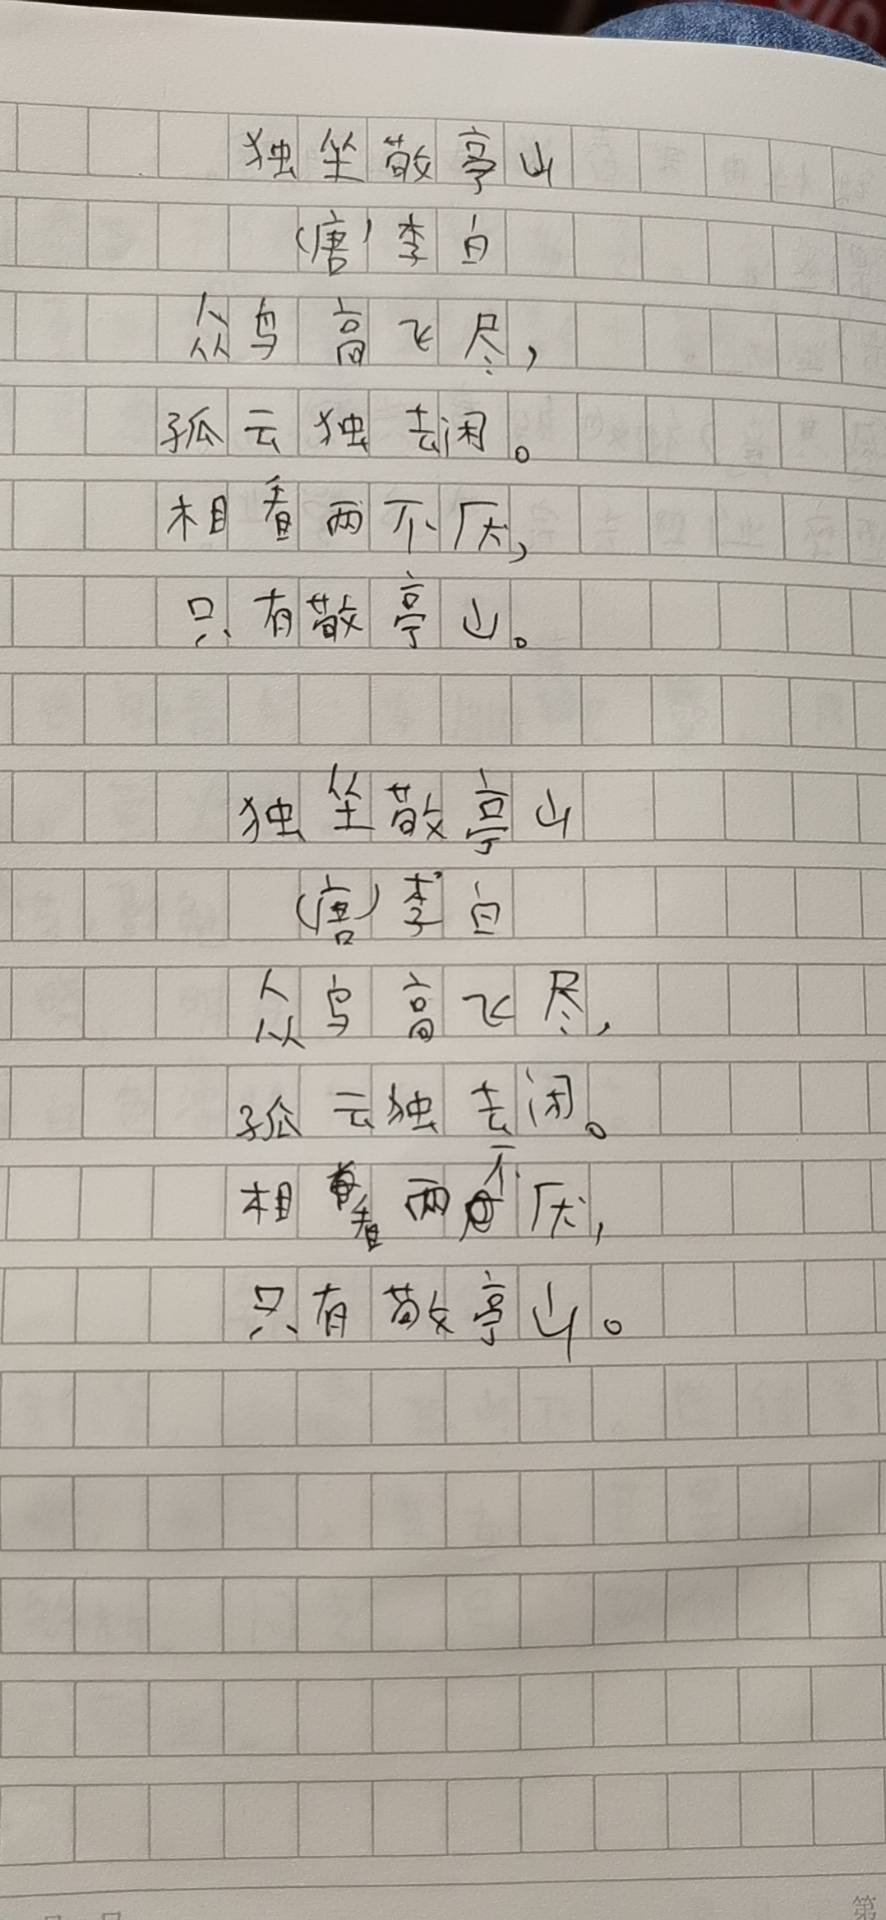 独坐敬亭山
(唐)李白
众鸟高飞尽，
孤云独去闲。
相看两不厌，
只有敬亭山。
独坐敬亭山
(唐)李白
众鸟高飞尽，
孤云独去闲。
相看两不厌，
只有敬亭山。
第